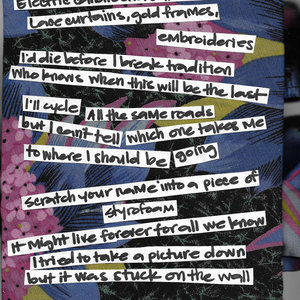 Electric
Lace curtains, gold frames,
embroideries
I'd die before I break tradition
Who knows when this will be the last
I'll cycle All the same roads
but I can't tell which one takes me
to where I should be going
scratch your name into a piece of
styrofoam
it might live forever for all we know
I tried to take a picture down
but it was stuck on the wall